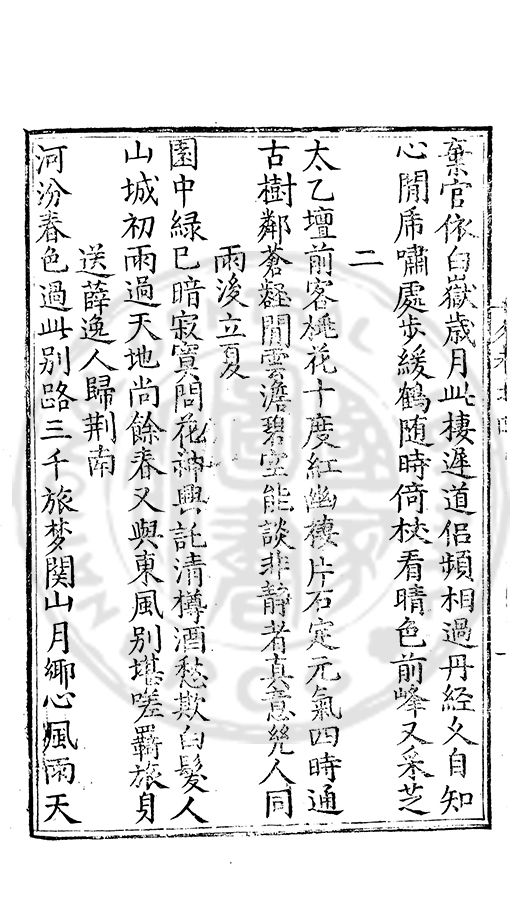 棄官依白嶽歲月此棲遲道侶頻相過丹經久自知
心閒虎嘯處步緩鶴随時倚杖看晴色前峰又采芝
二
太乙壇前客桃花十度紅幽棲片石定元氣四時通
古樹鄰蒼靄閒雲澹碧空能談非靜者真意幾人同
雨後立夏
園中綠已暗寂寞問花神興託清樽酒愁欺白髮人
山城初雨過天地尚餘春又與東風別堪嗟羈旅身
送薛逸人歸荆南
河汾春色過此别路三千旅梦関山月鄉心風雨天